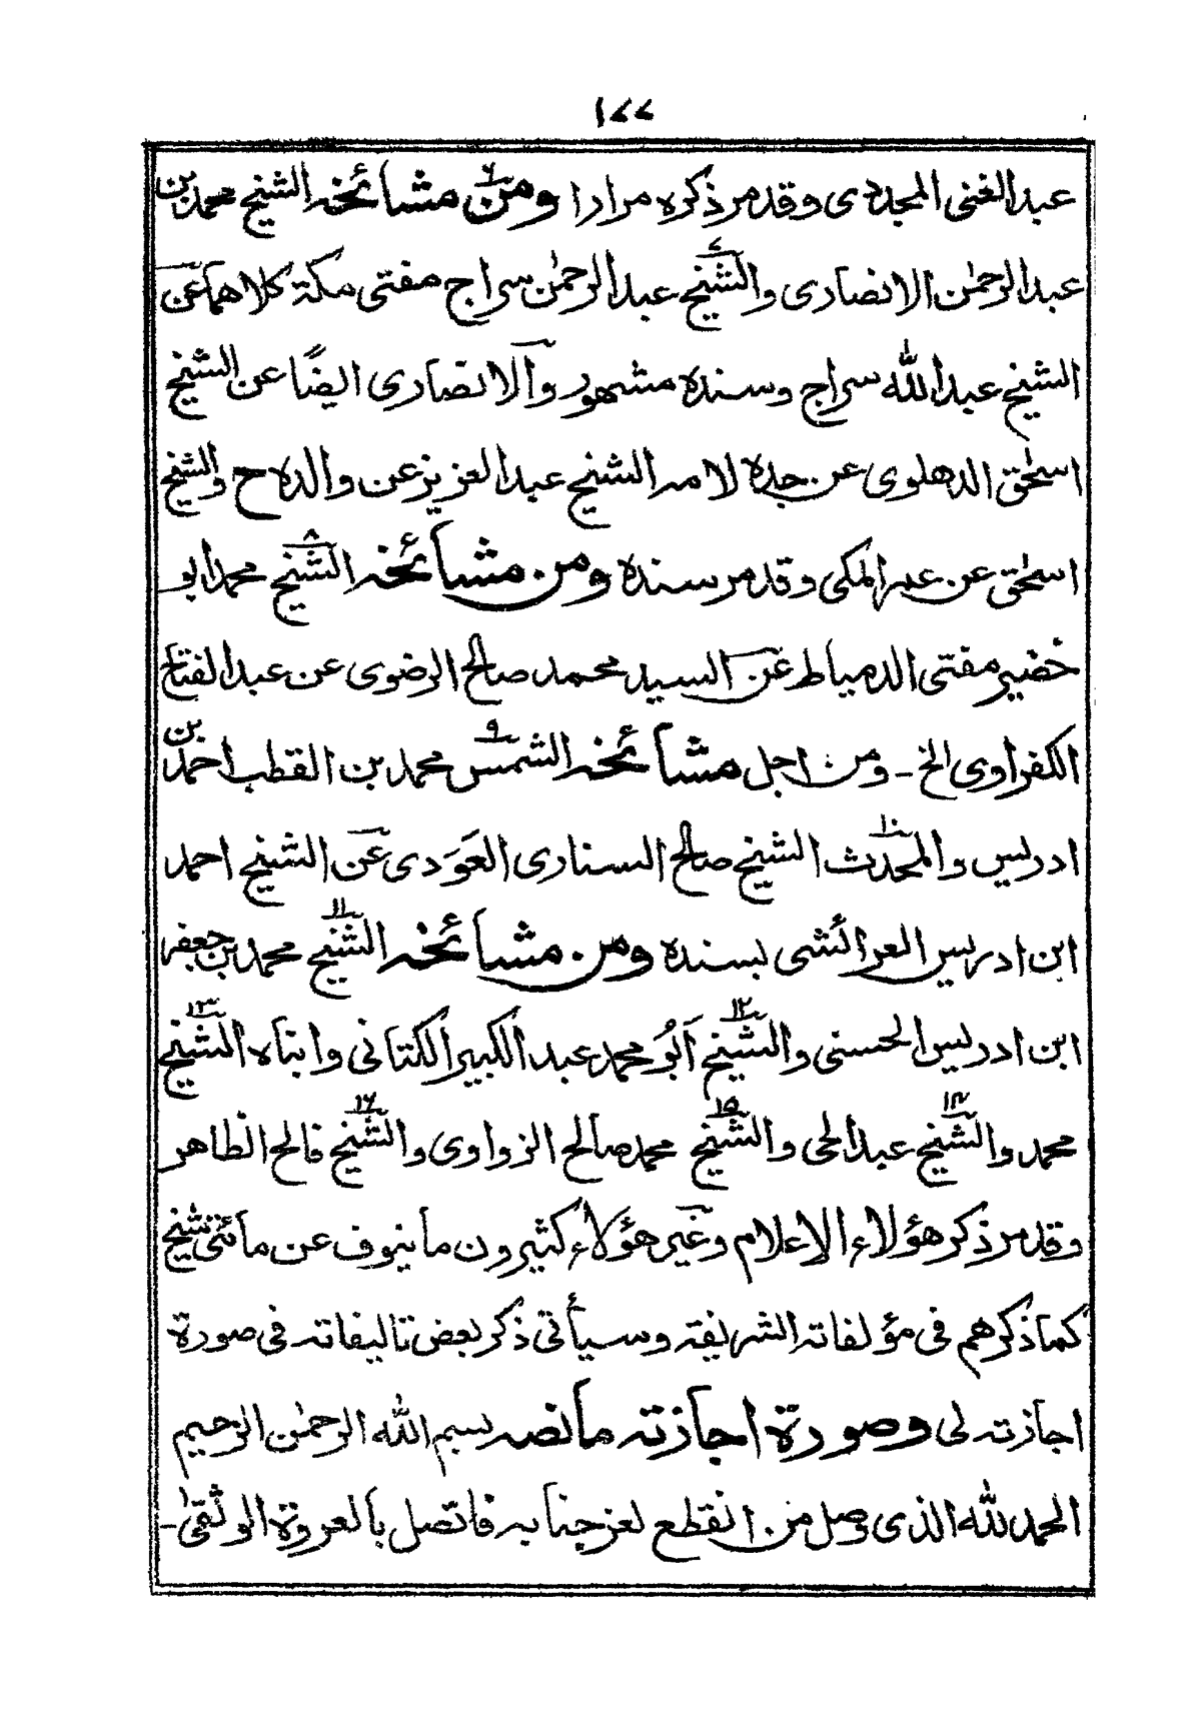 ١٧٧
عبد الغنى المجددى وقد مر ذكره مرارا ومن٦ مشائخه الشيخ محمد بن
عبد الرحمٰن الانصارى والشيخ٧ عبد الرحمٰن سراج مفتى مكة كلاهما عن
الشيخ عبد الله سراج وسنده مشهور والانصارى ايضًا عن الشيخ
اسحٰق الدهلوى عن جده لامه الشيخ عبد العزيز عن والده ح والشيخ
اسحٰق عن عمر المكى وقد مر سنده ومن مشائخه الشيخ٨ محمد ابو
خضير مفتى الدمياط عن السيد محمد صالح الرضوى عن عبد الفتاح
الكفراوى الخ - ومن اجل مشائخه الشمس٩ محمد بن القطب احمد بن
ادريس والمحدث١٠ الشيخ صالح السنارى العَوَدى عن الشيخ احمد
ابن ادريس العرائشى بسنده ومن مشائخه الشيخ١١ محمد بن جعفر
ابن ادريس الحسنى والشيخ١٢ اَبُو محمد عبد الكبير الكتانى وابناه الشيخ١٣
محمد والشيخ١٤ عبد الحى والشيخ١٥ محمد صالح الزواوى والشيخ١٦ فالح الظاهر
وقد مر ذكر هؤلاء الاعلام وغير هؤلاء كثيرون ما ينوف عن مائتى شيخ
كما ذكرهم فى مؤلفاته الشريفة وسيأتى ذكر بعض تاليفاته فى صورة
اجازته لى وصورة اجازته ما نصه بسم الله الرحمٰن الرحيم
الحمد لله الذى وصل من انقطع لعز جنابه فاتصل بالعروة الوثقىٰ-